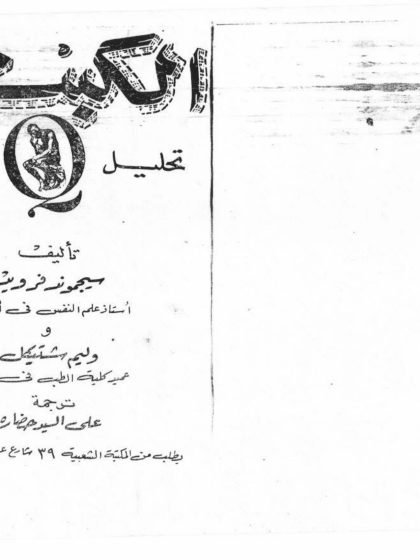 الكبت
تحليل
Q
تأليف
سيجموند فرويد
أستاذ علم النفس فى
و
وليم شتيكل
عميد كلية الطب فى
ترجمة
على السيد حضاره
يطلب من المكتبة الشعبية ٣٩ شارع